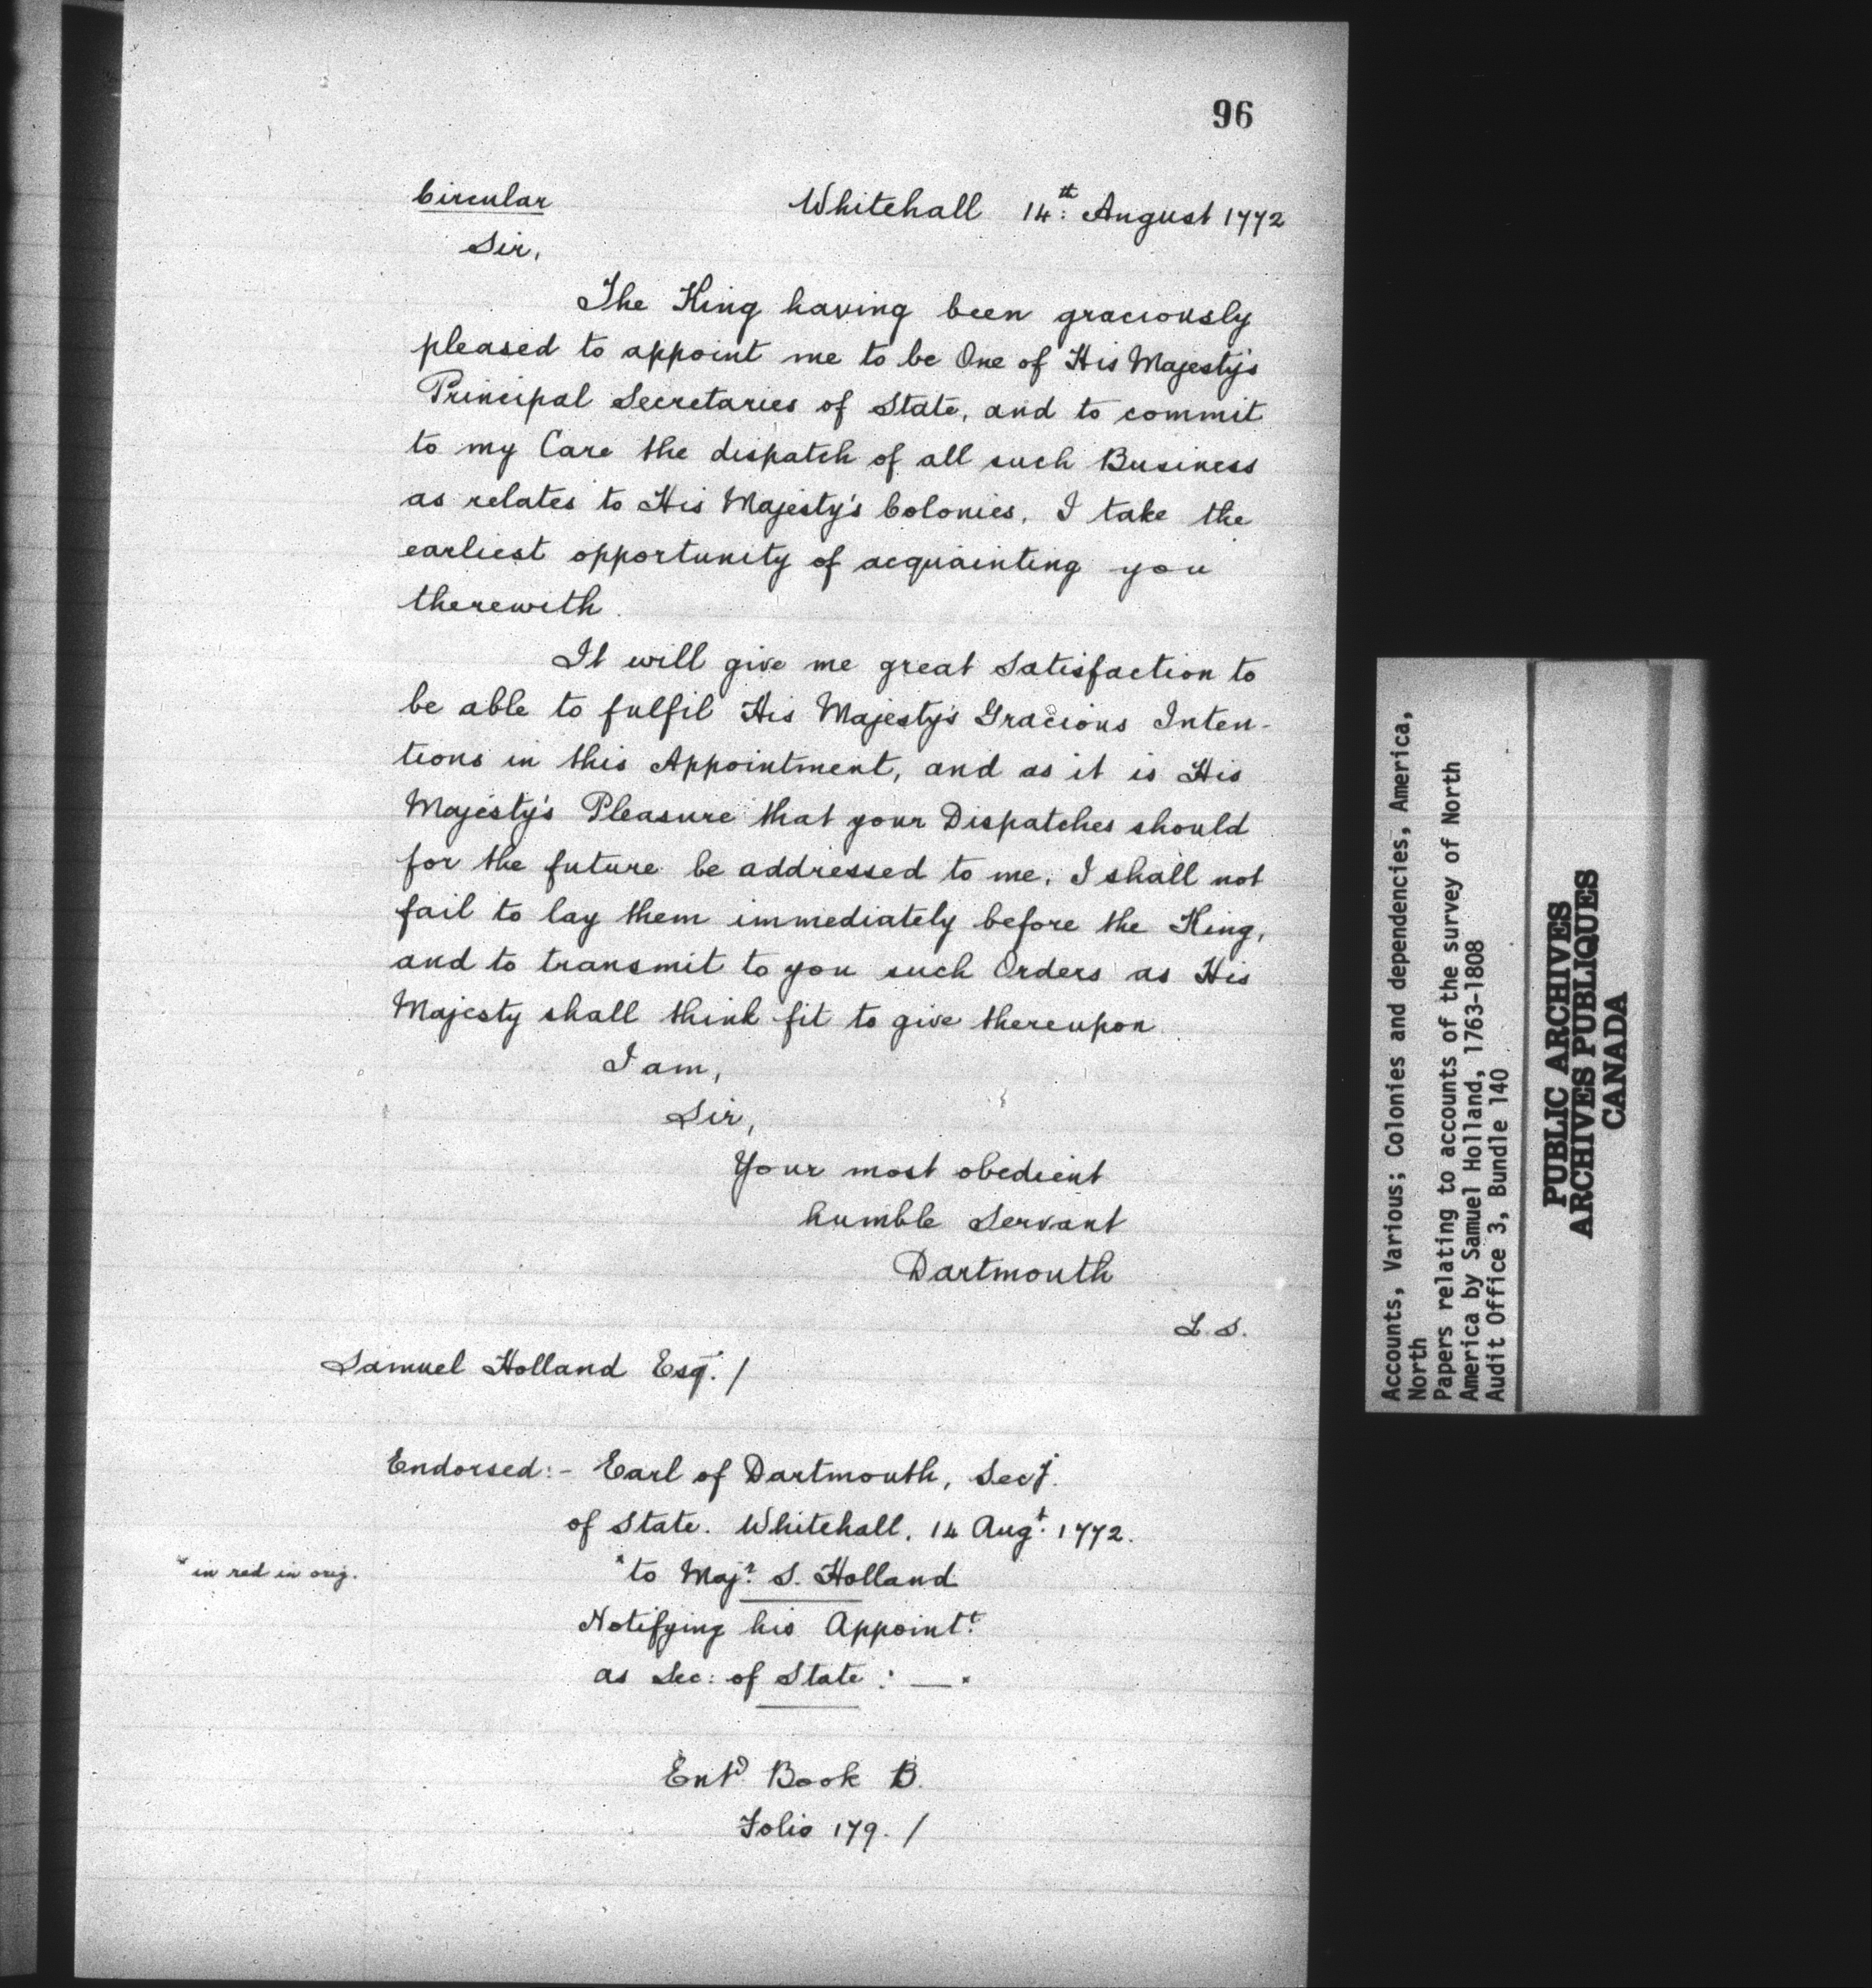 96
Circular
Whitehall 14th: August 1772
Sir,
The King having been graciously
pleased to appoint me to be One of His Majesty's
Principal Secretaries of State, and to commit
to my Care the dispatch of all such Business
as relates to His Majesty's Colonies, I take the
earliest opportunity of acquainting you
therewith.
It will give me great Satisfaction to
be able to fulfil His Majesty's Gracious Inten-
tions in this Appointment, and as it is His
Majesty's Pleasure that your Dispatches should
for the future be addressed to me, I shall not
fail to lay them immediately before the King,
and to transmit to you such Orders as His
Majesty shall think fit to give thereupon.
I am,
Sir,
Your most obedient
humble Servant
Dartmouth
L. S.
Samuel Holland Esqr. /
Endorsed:- Earl of Dartmouth, Secy.
of State. Whitehall, 14 Augt. 1772.
* in red in orig.
*to Majr. S. Holland
Notifying his Appointt.
as Sec: of State : — .
Entd. Book B.
Folio 179. /
Accounts, Various; Colonies and dependencies, America,
North
Papers relating to accounts of the survey of North
America by Samuel Holland, 1763-1808
Audit Office 3, Bundle 140
PUBLIC ARCHIVES
ARCHIVES PUBLIQUES
CANADA